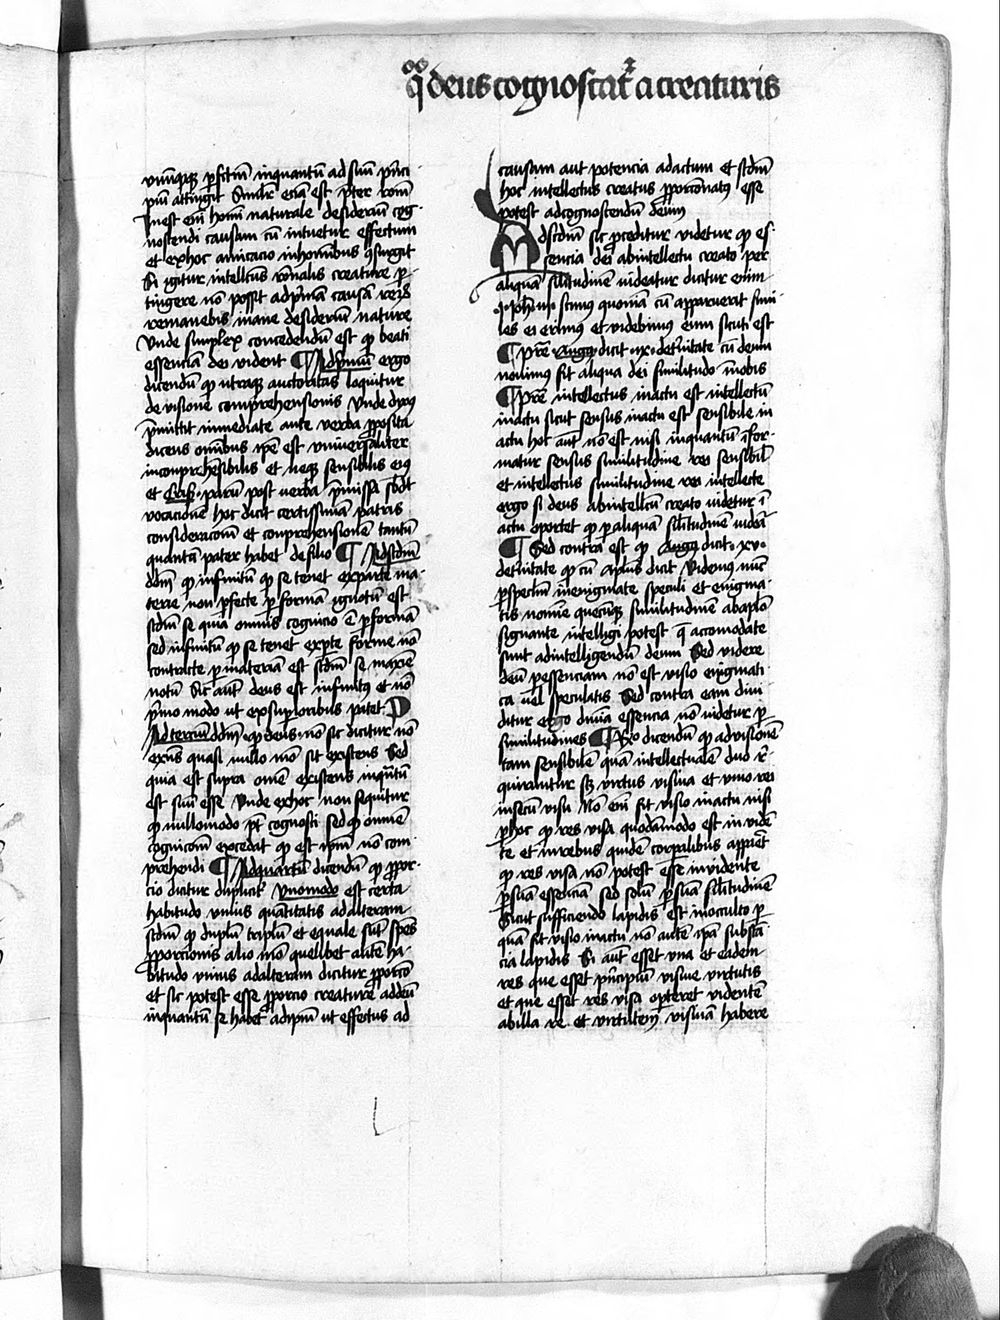 qͦͦ deus cognoscatᷣ a creaturis
vnūqͥqꝫ ꝑfctm̄ inquantū ad suū pͥnci
piū attingit Simlr eciā est p̄ter rom̄
Inest em̄ homī naturale desideriū cog
noscendi causam cū intuetur effectum
et ex hoc amiracio in hominibus ꝯsurgit
Si igitur intellcūs rōnalis creature ꝑ
tingere nō possit ad pͥmā causā rerū
remanebit inane desideriū nature
Vnde simplex concedendū est qꝫ beati
essenciā dei vident ¶ Ad pͥmum ergo
dicendū qꝫ utraqꝫ auctoritas loquitur
de visione comprehensionis Vnde dyoꝰ
p̄mittit inmediate ante verba ꝓposita
dicens omībus ipē est vniuersaliter
inconprehēsibilis et neqꝫ sensibilis eiꝰ
et Crisꝰ parū post verba p̄missa sbdt
visionē hoc dicit certissimā patris
consideracionē et conprehensionē tantū
quantā pater habet de filio ¶ Ad scdm̄
ddm̄ qꝫ infinitū qꝫ se tenet ex parte ma
terie non ꝑfecte ꝑ formā ignotū est
scdm̄ se quia omnis cognicio ē ꝑ formā
sed infinitū qꝫ se tenet ex ꝑte forme nō
contracte ꝑ materiā est scdm̄ se maxīe
notū Sic autē deus est infinitꝰ et nō
pͥmo modo ut ex suꝑioribus patet
Ad terciū ddm̄ qꝫ deus nō sic dicitur nō
exn̄s quasi nullo mō sit existens Sed
quia est supra omē existens inqntū
est suū esse Vnde ex hoc non sequitur
qꝫ nullomodo pt̄ cognosci sed qꝫ omnē
cognicōm excedat qꝫ est ipm̄ nō com
prehendi ¶ Ad quartū dicendū qꝫ ꝓpor
cio dicitur duplicit͛ Vno modo est certa
habitudo vnius quātitatis ad alteram
scdm̄ qꝫ duplū triplū et equale sūt spēs
ꝓporcionis alio mō quelibet alitē ha
bitudo vnius ad alteram dicitur ꝓporcō
et sic potest esse ꝓporcio creature ad deū
inquantū se habet ad ipm̄ ut effectus ad
causam aut potencia ad actum et scdm̄
hoc intellectus creatus ꝓporcionatꝰ esse
potest ad cognoscendū deūm
Ad scdm̄ sic ꝓceditur videtur qꝫ es
sencia dei ab intellectu creato per
aliquā silitudinē videatur dicitur enim
.i. Joh̄ iii scimus quoniā cū apparuerit simi
les ei erimus et videbimus eum sicuti est
¶ Pret͛e Augꝰ dicit ix de trīitate cū deum
nouimus fit aliqua dei similitudo in nobis
¶ Pret͛e intellectus in actu est intellectū
in actu sicut sensus in actu est sensibile in
actu hoc aut nō est nisi inquantū īfor
matur sensus similitudine rei sensibil
et intellectus similitudine rei intellecte
ergo si deus ab intellcū creato videtur ī
actu oportet qꝫ ꝑ aliquā silitudinē videā
¶ Sed contra est qꝫ Augꝰ dicit xv
de trīitate qꝫ cū aplūs dicit Videmus nūc
ꝑ speclm̄ in enigmate speculi et enigma
tis nomine quecūqꝫ similitudinē ab aplō
signante intelligi potest q̄ acomodate
sunt ad intelligendū deum Sed videre
deū ꝑ essenciam nō est visio enigmati
ca vel speculatis Sed contra eam diui
ditur ergo diuīa essencia nō videtur ꝑ
similitudines ¶ Rō dicendū qꝫ ad visionē
tam sensibilē quā intellectualē duo re
quiruntur sꝫ virtus visiua et vnio rei
in secū visu Nō em̄ fit visio in actu nisi
ꝑ hoc qꝫ res visa quodāmodo est in vidē
te et in rebus quidē corꝑalibus apparet
qꝫ res visa nō potest esse in vidente
ꝑ suā essenciā sed solū ꝑ suā silitudinē
Sicut sufficiendo lapidis est in oculo ꝑ
quā fit visio in actu nō autē ipā substā
cia lapidis Si autē esset vna et eadem
res que esset pͥncipiū visiue virtutis
et que esset res visa oporteret videntē
ab illa re et virtutem visiuā habere